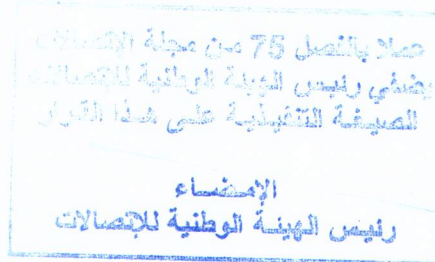 عملا بالفصل 75 من مجلة الإتصالات
يمضي رئيس الهيئة الوطنية للإتصالات
الصيغة التنفيذية على هذا القرار
الإمضاء
رئيس الهيئة الوطنية للإتصالات